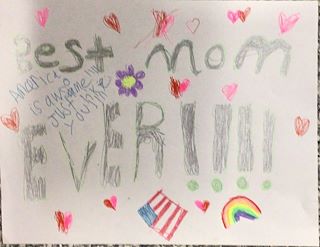 Best Mom
America
is awesome
just
you
EVER!!!!